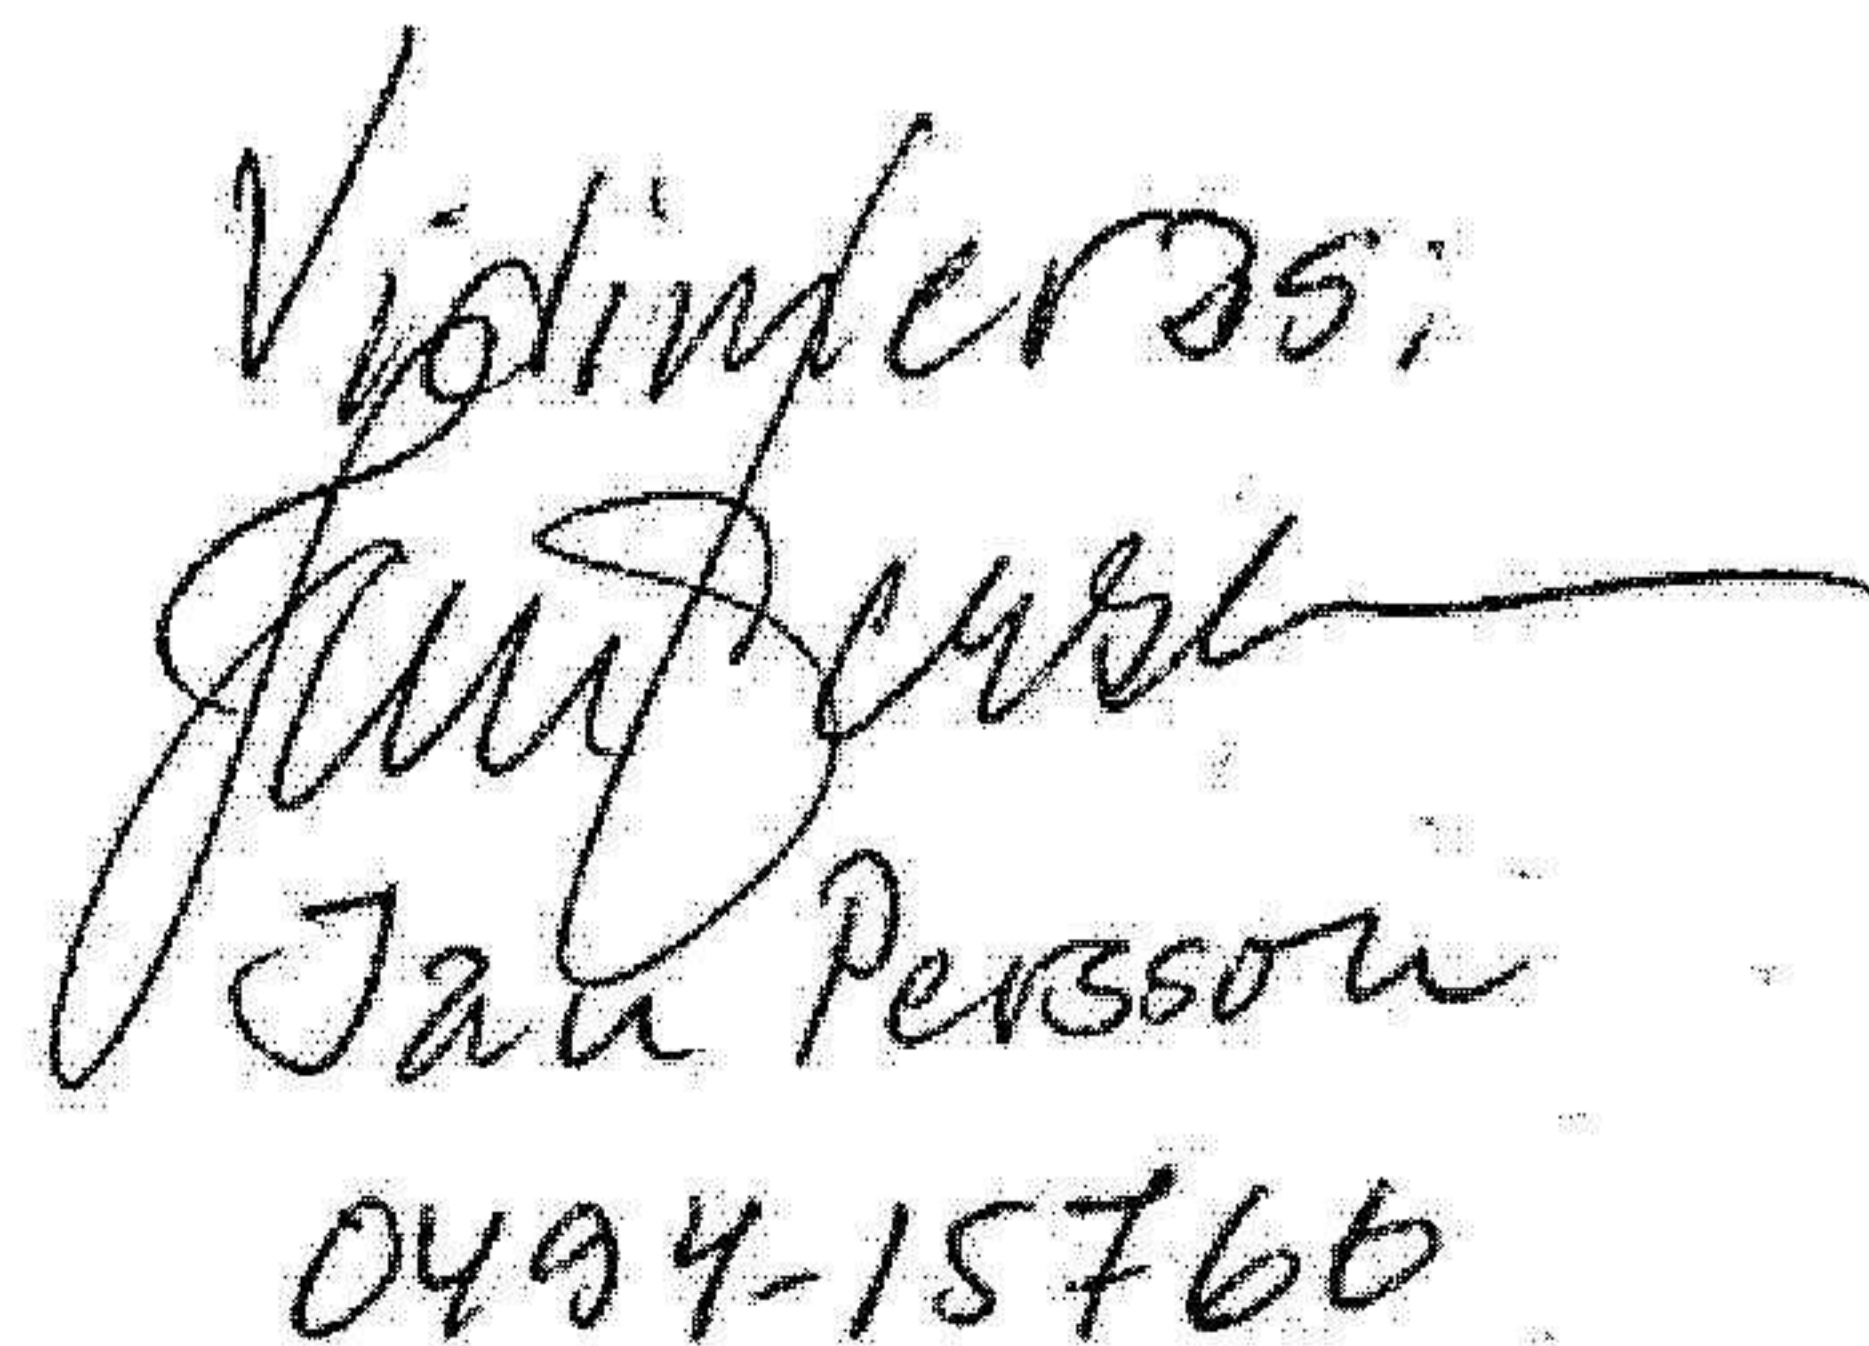 Vidimeras:
Jan Persson
Jan Persson
0494-15766